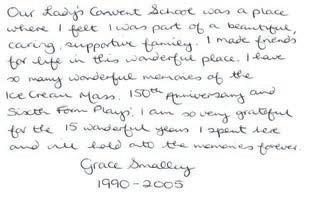 Our Lady's Convent School was a place
where I felt I was part of a beautiful,
caring, supportive family. I made friends
for life in this wonderful place. I have
so many wonderful memories of the
Ice Cream Mass, 150th Anniversary and
Sixth Form Plays. I am so very grateful
for the 15 wonderful years I spent here
and will hold onto the memories forever.
Grace Smalley
1990-2005